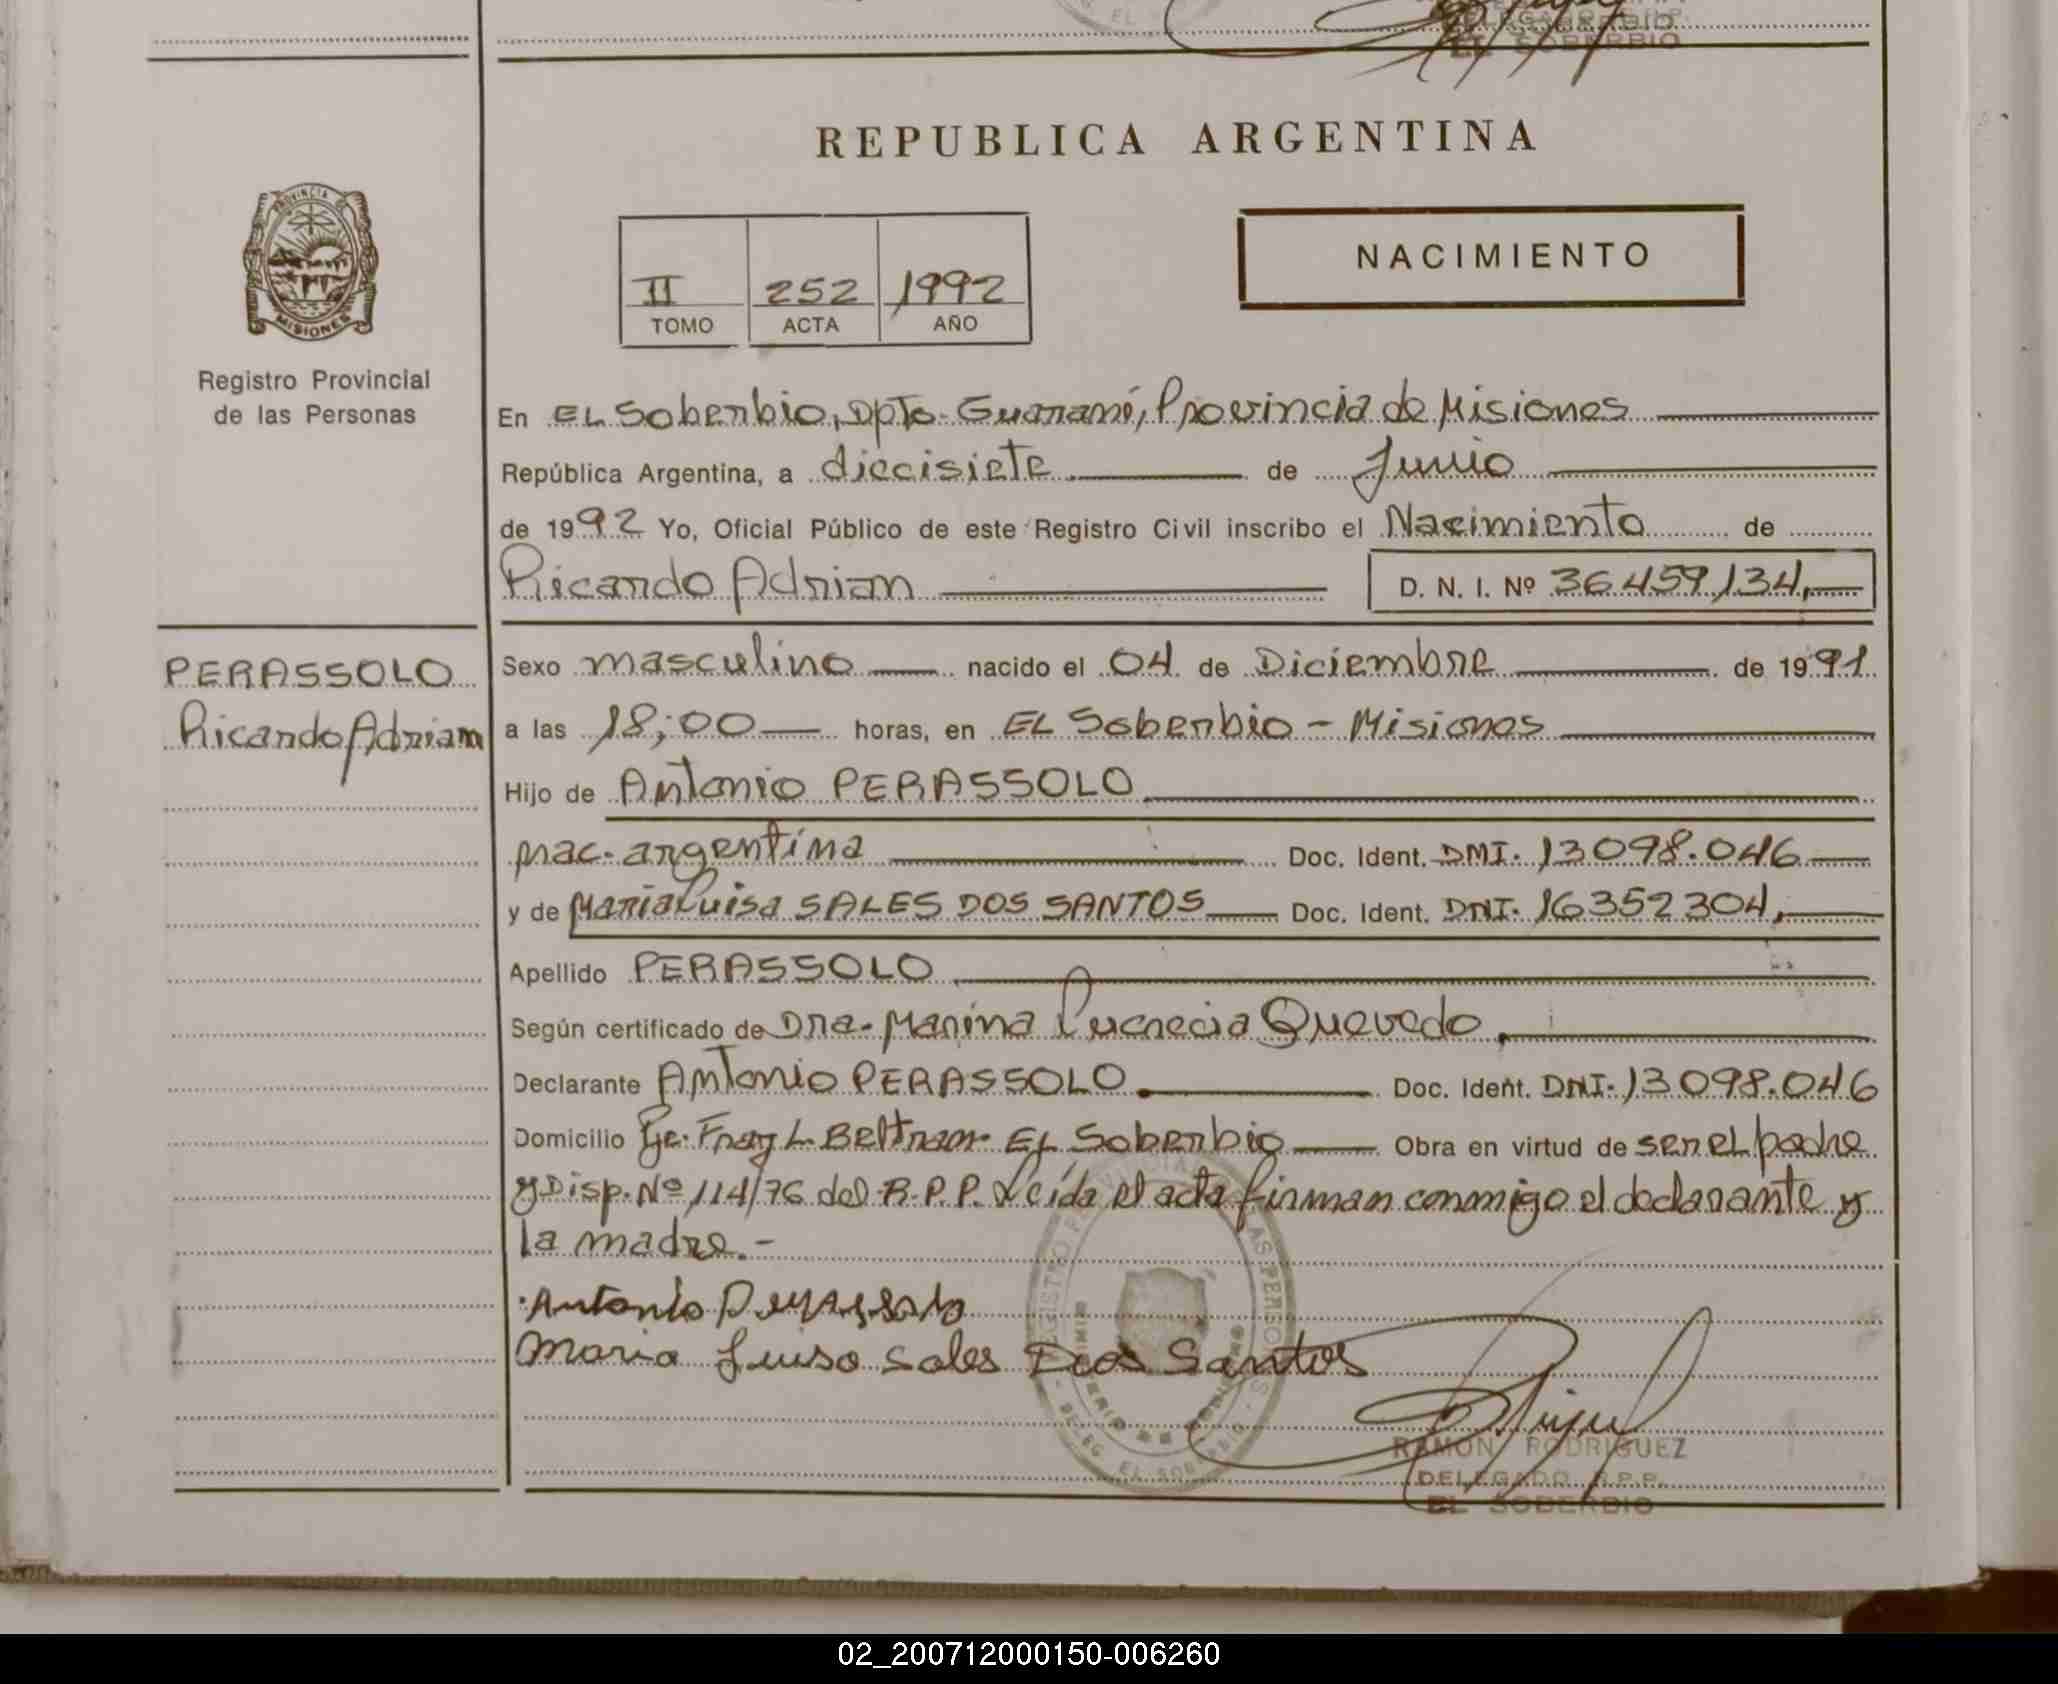 DELEGADO R.P.R.
EL SOBERBIO
REPUBLICA ARGENTINA
PROVINCIA DE
MISIONES
Registro Provincial
de las Personas
II 252 1992
TOMO ACTA AÑO
NACIMIENTO
En EL Soberbio, Dpto. Guaraní, Provincia de Misiones
República Argentina, a diecisiete de Junio
de 1992 Yo, Oficial Público de este Registro Civil inscribo el Nacimiento de
Ricardo Adrian D. N. I. Nº 36459134,
PERASSOLO
Ricardo Adrian
Sexo masculino nacido el 04 de Diciembre de 1991
a las 18;00 horas, en EL Soberbio - Misiones
Hijo de Antonio PERASSOLO
nac. argentina Doc. Ident. DNI. 13098.046
y de Maria Luisa SALES DOS SANTOS Doc. Ident. DNI. 16352304,
Apellido PERASSOLO
Según certificado de Dra. Marina Lucrecia Quevedo,
Declarante Antonio PERASSOLO. Doc. Ident. DNI. 13098.046
Domicilio Fray L. Beltram EL Soberbio Obra en virtud de ser el padre
y Disp. Nº 114/76 del R.P.P. Leída el acta firman conmigo el declarante y
la madre.-
Antonio Perassolo
Maria Luiso Sales Dos Santos
RAMON RODRIGUEZ
DELEGADO R.P.R.
EL SOBERBIO
02_200712000150-006260